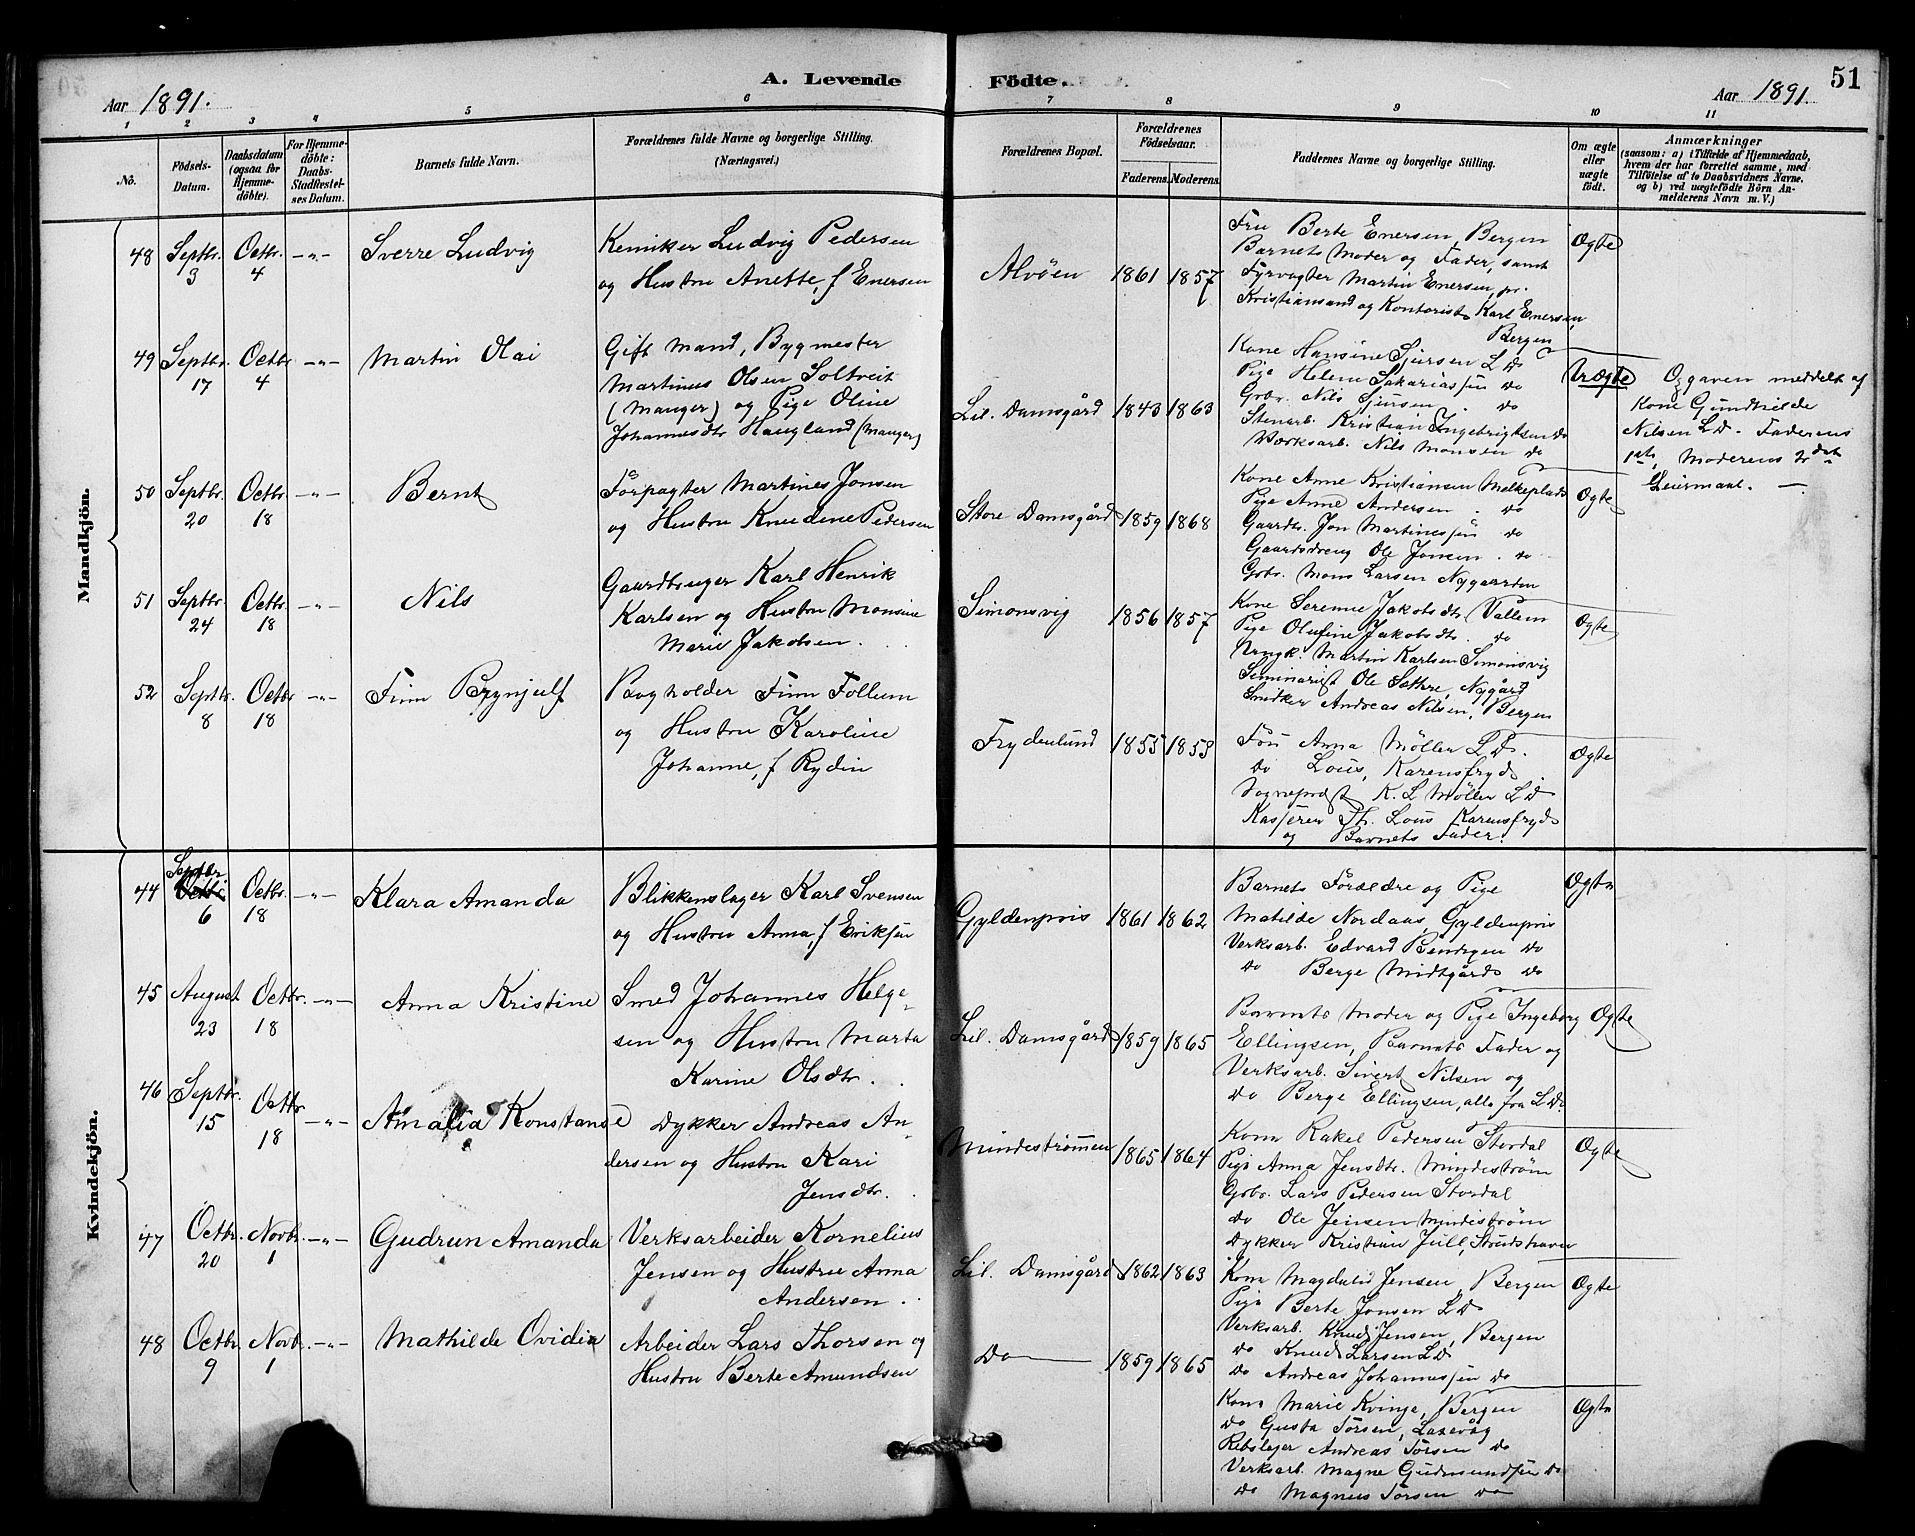 A. Levende Födte. 51
Aar 1891. Aar 1891.
1 2 3 4 5 6 7 8 9 10 11
No.
Födsels-Datum.
Daabsdatum (ogsaa for Hjemme-döbte).
For Hjemme-döbte: Daabs-Stadfæstel-ses Datum.
Barnets fulde Navn.
Forældrenes fulde Navne og borgerlige Stilling. (Næringsvei.)
Forældrenes Bopæl.
Forældrenes Födselsaar.
Faderens. Moderens.
Faddernes Navne og borgerlige Stilling.
Om ægte eller uægte födt.
Anmærkninger
(saasom: a) i Tilfælde af Hjemmedaab,
hvem der har forrettet samme, med
Tilföielse af to Daabsvidners Navne.
og b) ved uægtefödte Börn An-
melderens Navn m. V.)
Mandkjön.
48 Septbr. 3 Octbr. 4 -"- Sverre Ludvig
Kemiker Ludvig Pedersen
og Hustru Anette, f Enersen
Alvöen 1861 1857
Fru Berte Enersen, Bergen
Barnets Moder og Fader, samt
Fyrvogter Martin Enersen, pr.
Kristiansand og Kontorist Karl Enersen,
Bergen
Ægte
49 Septbr. 17 Octbr 4 -"- Martin Olai
Gift Mand, Bygmester
Martinus Olsen Soltveit
(Manger) og Pige Oline
Johannesdtr Haugland (Manger)
Lil. Damsgård 1843 1863
Kone Hansine Sjursen L D
Pige Helene Sakariassen do
Grbr. Nils Sjursen do
Stenarb. Kristian Ingebrigtsen do
Værksarb. Nils Monsen do
Uægte
Opgaven meddelt af
Kone Gundhilde
Nilsen L D. Faderens
1ste, Moderens 2det
Leiermaal. —
50 Septbr. 20 Octbr. 18 -"- Bernt
Forpagter Martines Jonsen
og Hustru Knudine Pedersen
Store Damsgård 1859 1868
Kone Anne Kristiansen Melkeplads
Pige Anne Andersen . do
Gaardbr. Jon Martinessen do
Gaardsdreng Ole Jonsen . do
Grbr. Mons Larsen Nygaarden
Ægte
51 Septbr. 24 Octbr. 18 -"- Nils
Gaardbruger Karl Henrik
Karlsen og Hustru Monsine
Marie Jakobsen.
Simonsvig 1856 1857
Kone Serenne Jakobsdtr Vallem
Pige Olufine Jakobsdtr. do
Ungk. Martin Karlsen Simonsvig
Seminarist Ole Sæthre, Nygård
Snedker Andreas Nilsen, Bergen
Ægte
52 Septbr. 8 Octbr 18 -"- Finn Brynjulf
Bogholder Finn Follum
og Hustru Karoline
Johanne, f Rydin
Frydenlund 1855 1858
Fru Anna Möller L D.
do Lous, Karensfryd
Sogneprest K. L Möller L D
Kasserer Th. Lous Karensfryd
og Barnets Fader.
Ægte
Kvindekjön.
44 Septbr 6 Octbr. 18 -"- Klara Amanda
Blikkenslager Karl Svensen
og Hustru Anna, f Eriksen
Gyldenpris 1861 1862
Barnets Foreldre og Pige
Matilde Nordaas, Gyldenpris
Verksarb. Edvard Bendigen do
do Berge Midtgård do
Ægte
45 August 23 Octbr. 18 -"- Anna Kristine
Smed Johannes Helge-
sen og Hustru Marta
Karine Olsdtr.
Lil. Damsgård 1859 1865
Barnets Moder og Pige Ingeborg
Ellingsen, Barnets Fader og
Verksarb. Sivert Nilsen og
do Berge Ellingsen, alle fra L D.
Ægte
46 Septbr. 15 Octbr 18 -"- Amalia Konstanse
Dykker Andreas An-
dersen og Hustru Kari
Jensdtr.
Mindeströmmen 1865 1864
Kone Rakel Pedersen Stordal
Pige Anna Jensdtr. Mindeström
Grbr. Lars Pedersen Stordal
do Ole Jensen Mindeström
Dykker Kristian Jull, Strudshavn
Ægte
47 Octbr. 20 Novbr. 1 -"- Gudrun Amanda
Verksarbeider Kornelius
Jensen og Hustru Anna
Andersen.
Lil. Damsgård 1862 1863
Kone Magdalid Jensen, Bergen
Pige Berte Jonsen L D
Verksarb. Knud Jensen, Bergen
do Knud Larsen L D
do Andreas Johannessen do
Ægte
48 Octbr. 9 Novbr. 1 -"- Mathilde Ovidia
Arbeider Lars Thorsen og
Hustru Berte Amundsen
Do 1859 1865
Kone Marie Kvinge, Bergen
do Gusta Torsen, Laxevåg
Rebslager Andreas Torsen do
Verksarb. Magne Gudmundsen do
do Magnus Torsen do
Ægte